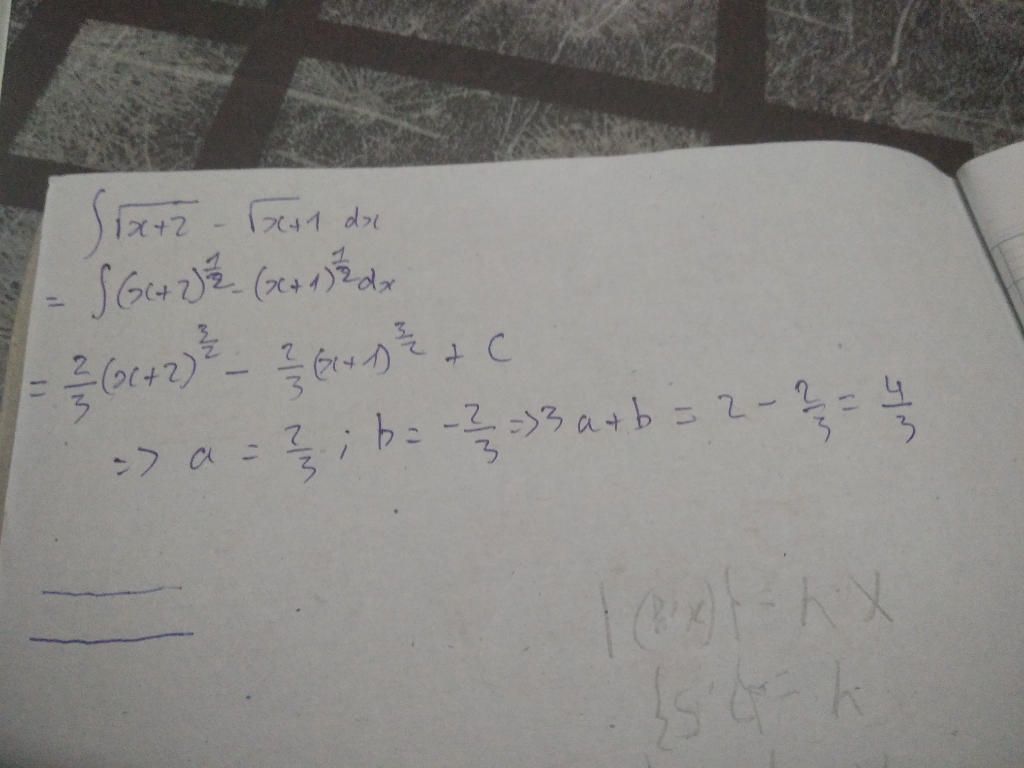 ∫√(x+2) - √(x+1) dx
= ∫(x+2)^(1/2) - (x+1)^(1/2) dx
= 2/3 (x+2)^(3/2) - 2/3 (x+1)^(3/2) + C
=> a = 2/3 ; b = -2/3 => 3a+b = 2 - 2/3 = 4/3